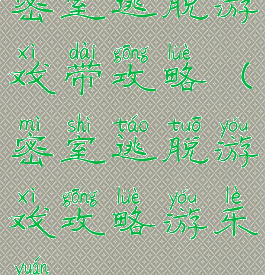 密室逃脱游
xì dài gōng lüè
戏带攻略（
mì shì táo tuō yóu
密室逃脱游
xì gōng lüè yóu lè
戏攻略游乐
yuán